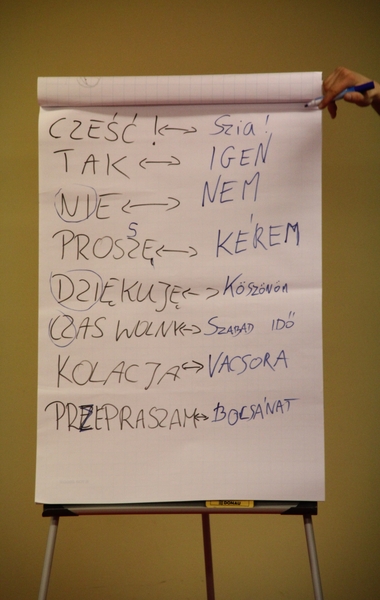 CZEŚĆ ! ↔ Szia!
TAK ↔ IGEN
NIE ↔ NEM
PROSZĘ ↔ KÉREM
DZIĘKUJĘ ↔ KÖSZÖNÖM
CZAS WOLNY ↔ SZABAD IDŐ
KOLACJA ↔ VACSORA
PRZEPRASZAM ↔ BOCSÁNAT